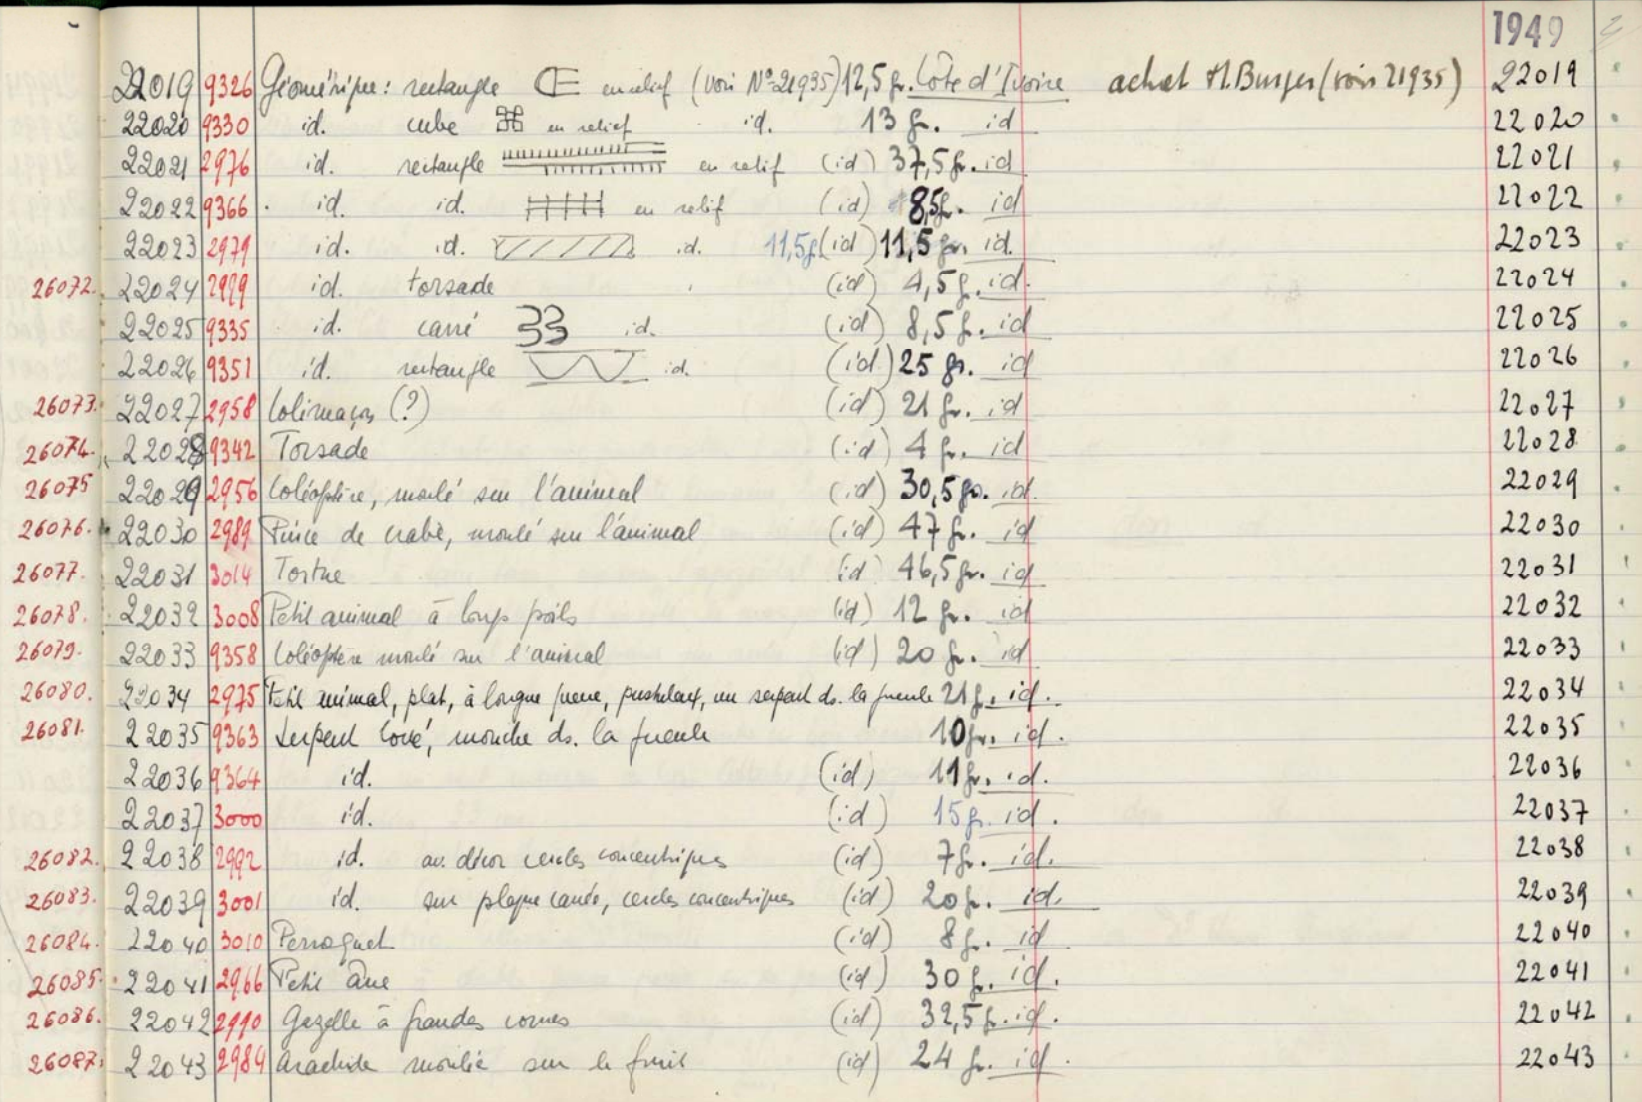 1949
22019 9326 Géométrique: rectangle en relief (voir N° 21935) 12,5 gr. Côte d'Ivoire achat H. Burger (voir 21935) 22019
22020 9330 id. cube en relief id. 13 gr. id 22020
22021 2976 id. rectangle en relief (id) 37,5 gr. id 22021
22022 9366 id. id. en relief (id) 8,5 gr. id 22022
22023 2979 id. id. id. 11,5 g (id) 11,5 gr. id. 22023
26072. 22024 2999 id. torsade (id) 4,5 g. id. 22024
22025 9335 id. carré id. (id) 8,5 gr. id 22025
22026 9351 id. rectangle id. (id.) 25 gr. id 22026
26073. 22027 2958 Colimaçon (?) (id) 21 gr. id 22027
26074. 22028 9342 Torsade (id) 4 gr. id 22028
26075 22029 2956 Coléoptère, moulé sur l'animal (id) 30,5 gr. id. 22029
26076. 22030 2989 Pince de crabe, moulé sur l'animal (id) 47 gr. id 22030
26077. 22031 3014 Tortue (id) 46,5 gr. id 22031
26078. 22032 3008 Petit animal à longs poils (id) 12 gr. id 22032
26079. 22033 9358 Coléoptère moulé sur l'animal (id) 20 gr. id 22033
26080. 22034 2975 Petit animal, plat, à longue queue, un serpent ds. la gueule 21 g. id. 22034
26081. 22035 9363 Serpent lové, mouche ds. la gueule 10 gr. id. 22035
22036 9364 id. (id) 11 gr. id. 22036
22037 3000 id. (id) 15 gr. id. 22037
26082. 22038 2992 id. av. décor cercles concentriques (id) 7 gr. id. 22038
26083. 22039 3001 id. sur plaque carrée, cercles concentriques (id) 20 gr. id. 22039
26084. 22040 3010 Perroquet (id) 8 gr. id 22040
26085. 22041 2966 Petit âne (id) 30 g. id. 22041
26086. 22042 2990 Gazelle à grandes cornes (id) 32,5 g. id. 22042
26087. 22043 2984 Arachide moulée sur le fruit (id) 24 gr. id. 22043